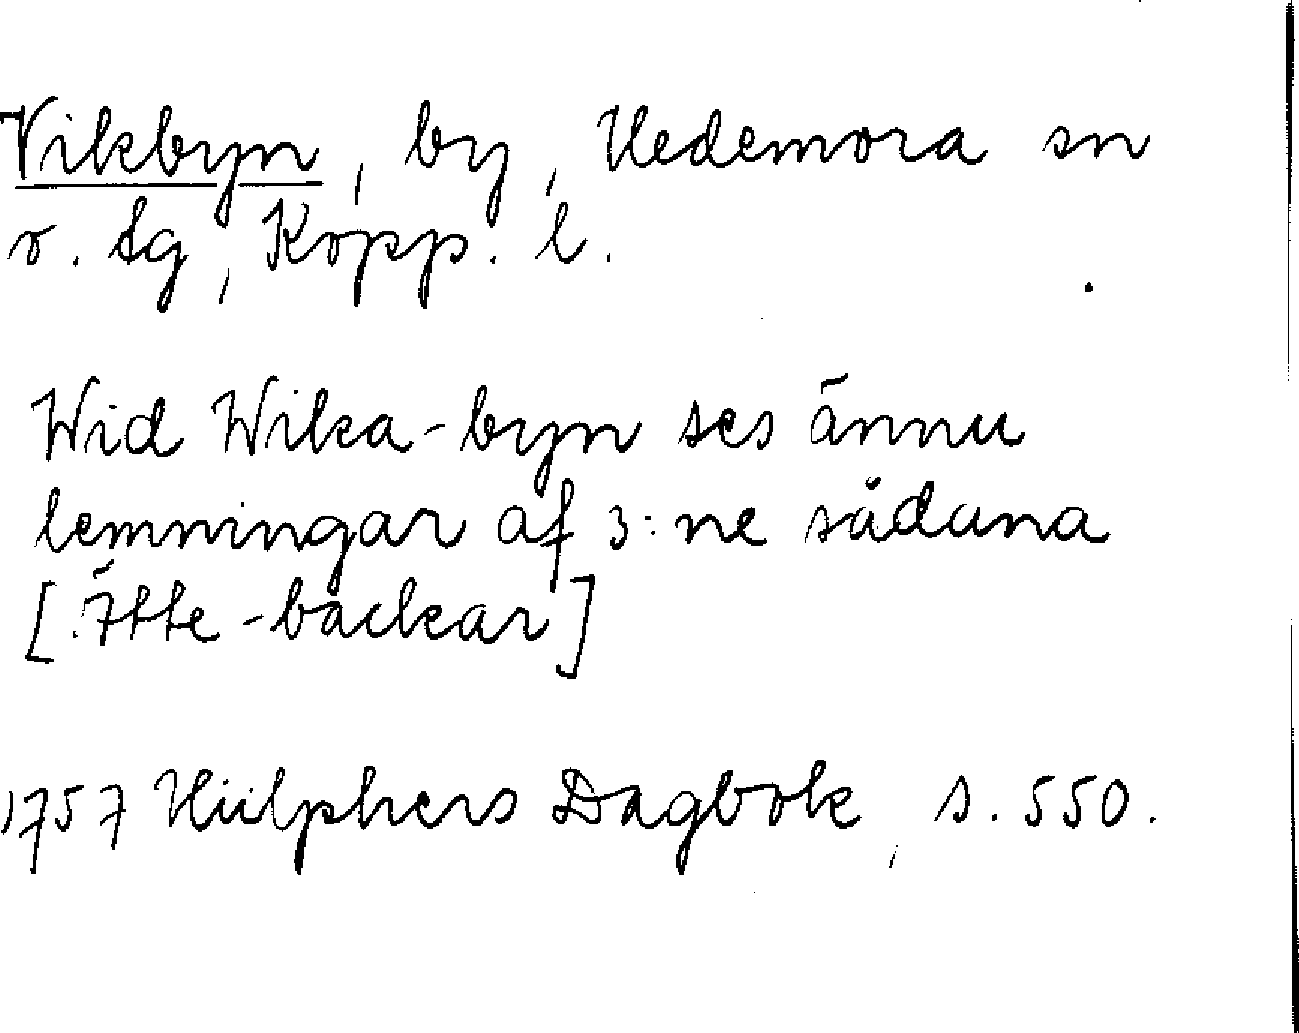 Vikbyn, by, Hedemora sn
o. tg, Kopp. l.
Wid Wika-byn ses ännu
lemningar af 3:ne sådana
[Ätte-backar]
1757 Hülphers Dagbok, s. 550.